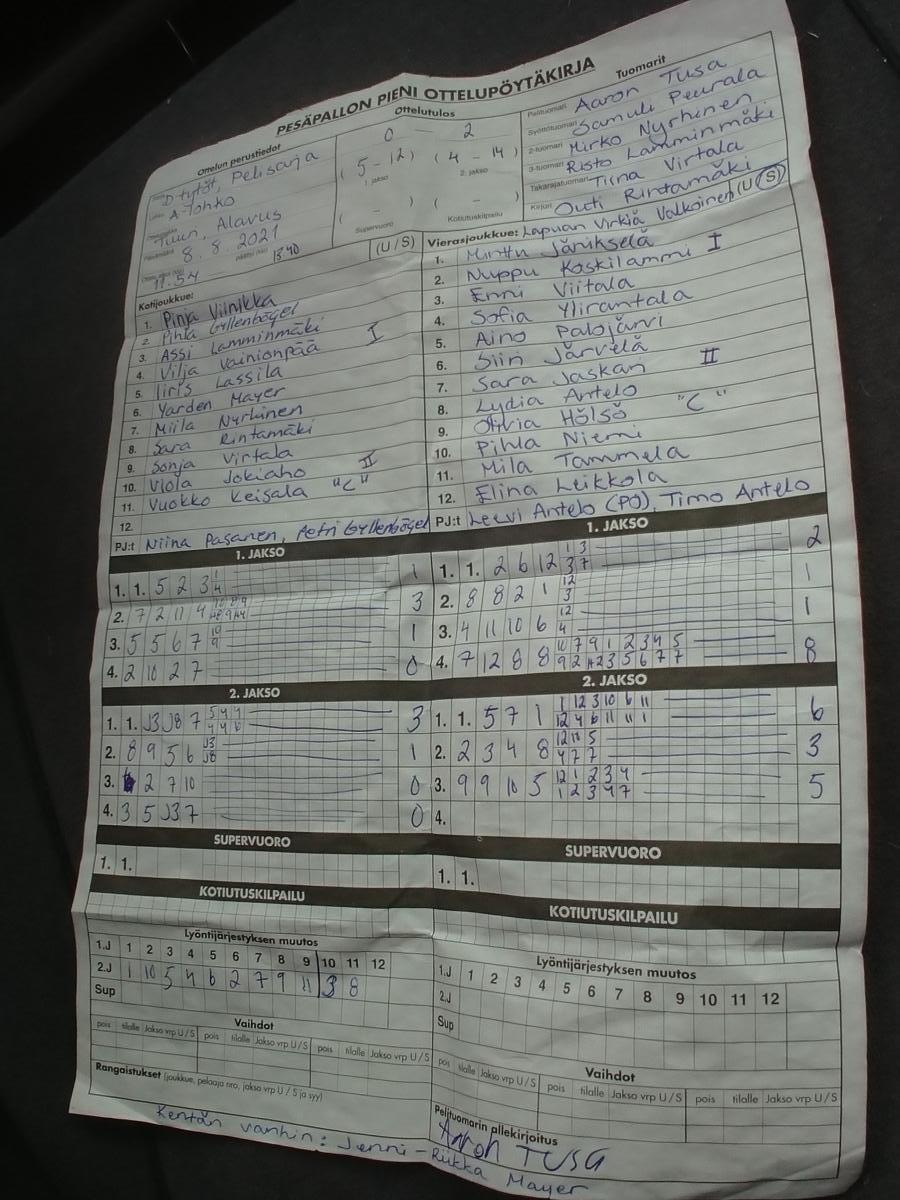 PESÄPALLON PIENI OTTELUPÖYTÄKIRJA
Ottelun perustiedot
D-tytöt, Pelisarja
A-lohko
Tuuri, Alavus
Päivämäärä 8.8.2021
11.54 päättyi (klo) 13.40
Ottelutulos
0 - 2
( 5 - 12 ) ( 4 - 14 )
1. jakso 2. jakso
( - ) ( - )
Supervuoro Kotiutuskilpailu
Tuomarit
Pelituomari Aaron Tusa
Syöttötuomari Samuli Peurala
2-tuomari Mirko Nyrhinen
3-tuomari Risto Lamminmäki
Takarajatuomari Tiina Virtala
Kirjuri Outi Rintamäki
Kotijoukkue: (U / S)
1. Pinja Viinikka
2. Pihla Gyllenbögel
3. Assi Lamminmäki
4. Vilja Vainionpää I
5. Iiris Lassila
6. Yarden Mayer
7. Miila Nyrhinen
8. Sara Rintamäki
9. Sonja Virtala
10. Viola Jokiaho II
11. Vuokko Keisala "C"
12.
PJ:t Niina Pasanen, Petri Gyllenbögel
Vierasjoukkue: Lapuan Virkiä Valkoinen (U / S)
1. Minttu Jänikselä
2. Nuppu Koskilammi I
3. Enni Viitala
4. Sofia Ylirantala
5. Aino Palojärvi
6. Siiri Järvelä
7. Sara Jaskari II
8. Lydia Antelo
9. Olivia Hölsö "C"
10. Pihla Niemi
11. Mila Tammela
12. Elina Leikkola
PJ:t Leevi Antelo (PJ), Timo Antelo
1. JAKSO
1. 1. 5 2 3 1
4 1
2. 7 2 11 4 3
3. 5 5 6 7 10
9 1
4. 2 10 2 7 0
2. JAKSO
1. 1. J3 J8 7 5 4 4
4 4 6 3
2. 8 9 5 6 J3
J8 1
3. 2 7 10 0
4. 3 5 J3 7 0
SUPERVUORO
1. 1.
KOTIUTUSKILPAILU
1. JAKSO
1. 1. 2 6 12 1 3
3 7 2
2. 8 8 2 1 12
3 1
3. 4 11 10 6 12
4 1
4. 7 12 8 8 10 7 9 1 2 3 4 5
9 2 12 3 5 6 7 7 8
2. JAKSO
1. 1. 5 7 1 1 12 3 10 6 11
12 4 6 11 11 1 6
2. 2 3 4 8 12 11 5
4 7 7 3
3. 9 9 10 5 12 1 2 3 4
1 2 3 4 7 5
4.
SUPERVUORO
1. 1.
KOTIUTUSKILPAILU
Lyöntijärjestyksen muutos
1.J 1 2 3 4 5 6 7 8 9 10 11 12
2.J 1 10 5 4 6 2 7 9 11 3 8
Sup
Vaihdot
pois tilalle Jakso vrp U / S pois tilalle Jakso vrp U / S pois tilalle Jakso vrp U / S
Rangaistukset (joukkue, pelaaja nro, jakso vrp U / S ja syy)
Lyöntijärjestyksen muutos
1.J 1 2 3 4 5 6 7 8 9 10 11 12
2.J
Sup
Vaihdot
pois tilalle Jakso vrp U / S pois tilalle Jakso vrp U / S pois tilalle Jakso vrp U / S
Pelituomarin allekirjoitus
Aaron TUSA
Kentän vanhin: Jenni-Riikka Mayer